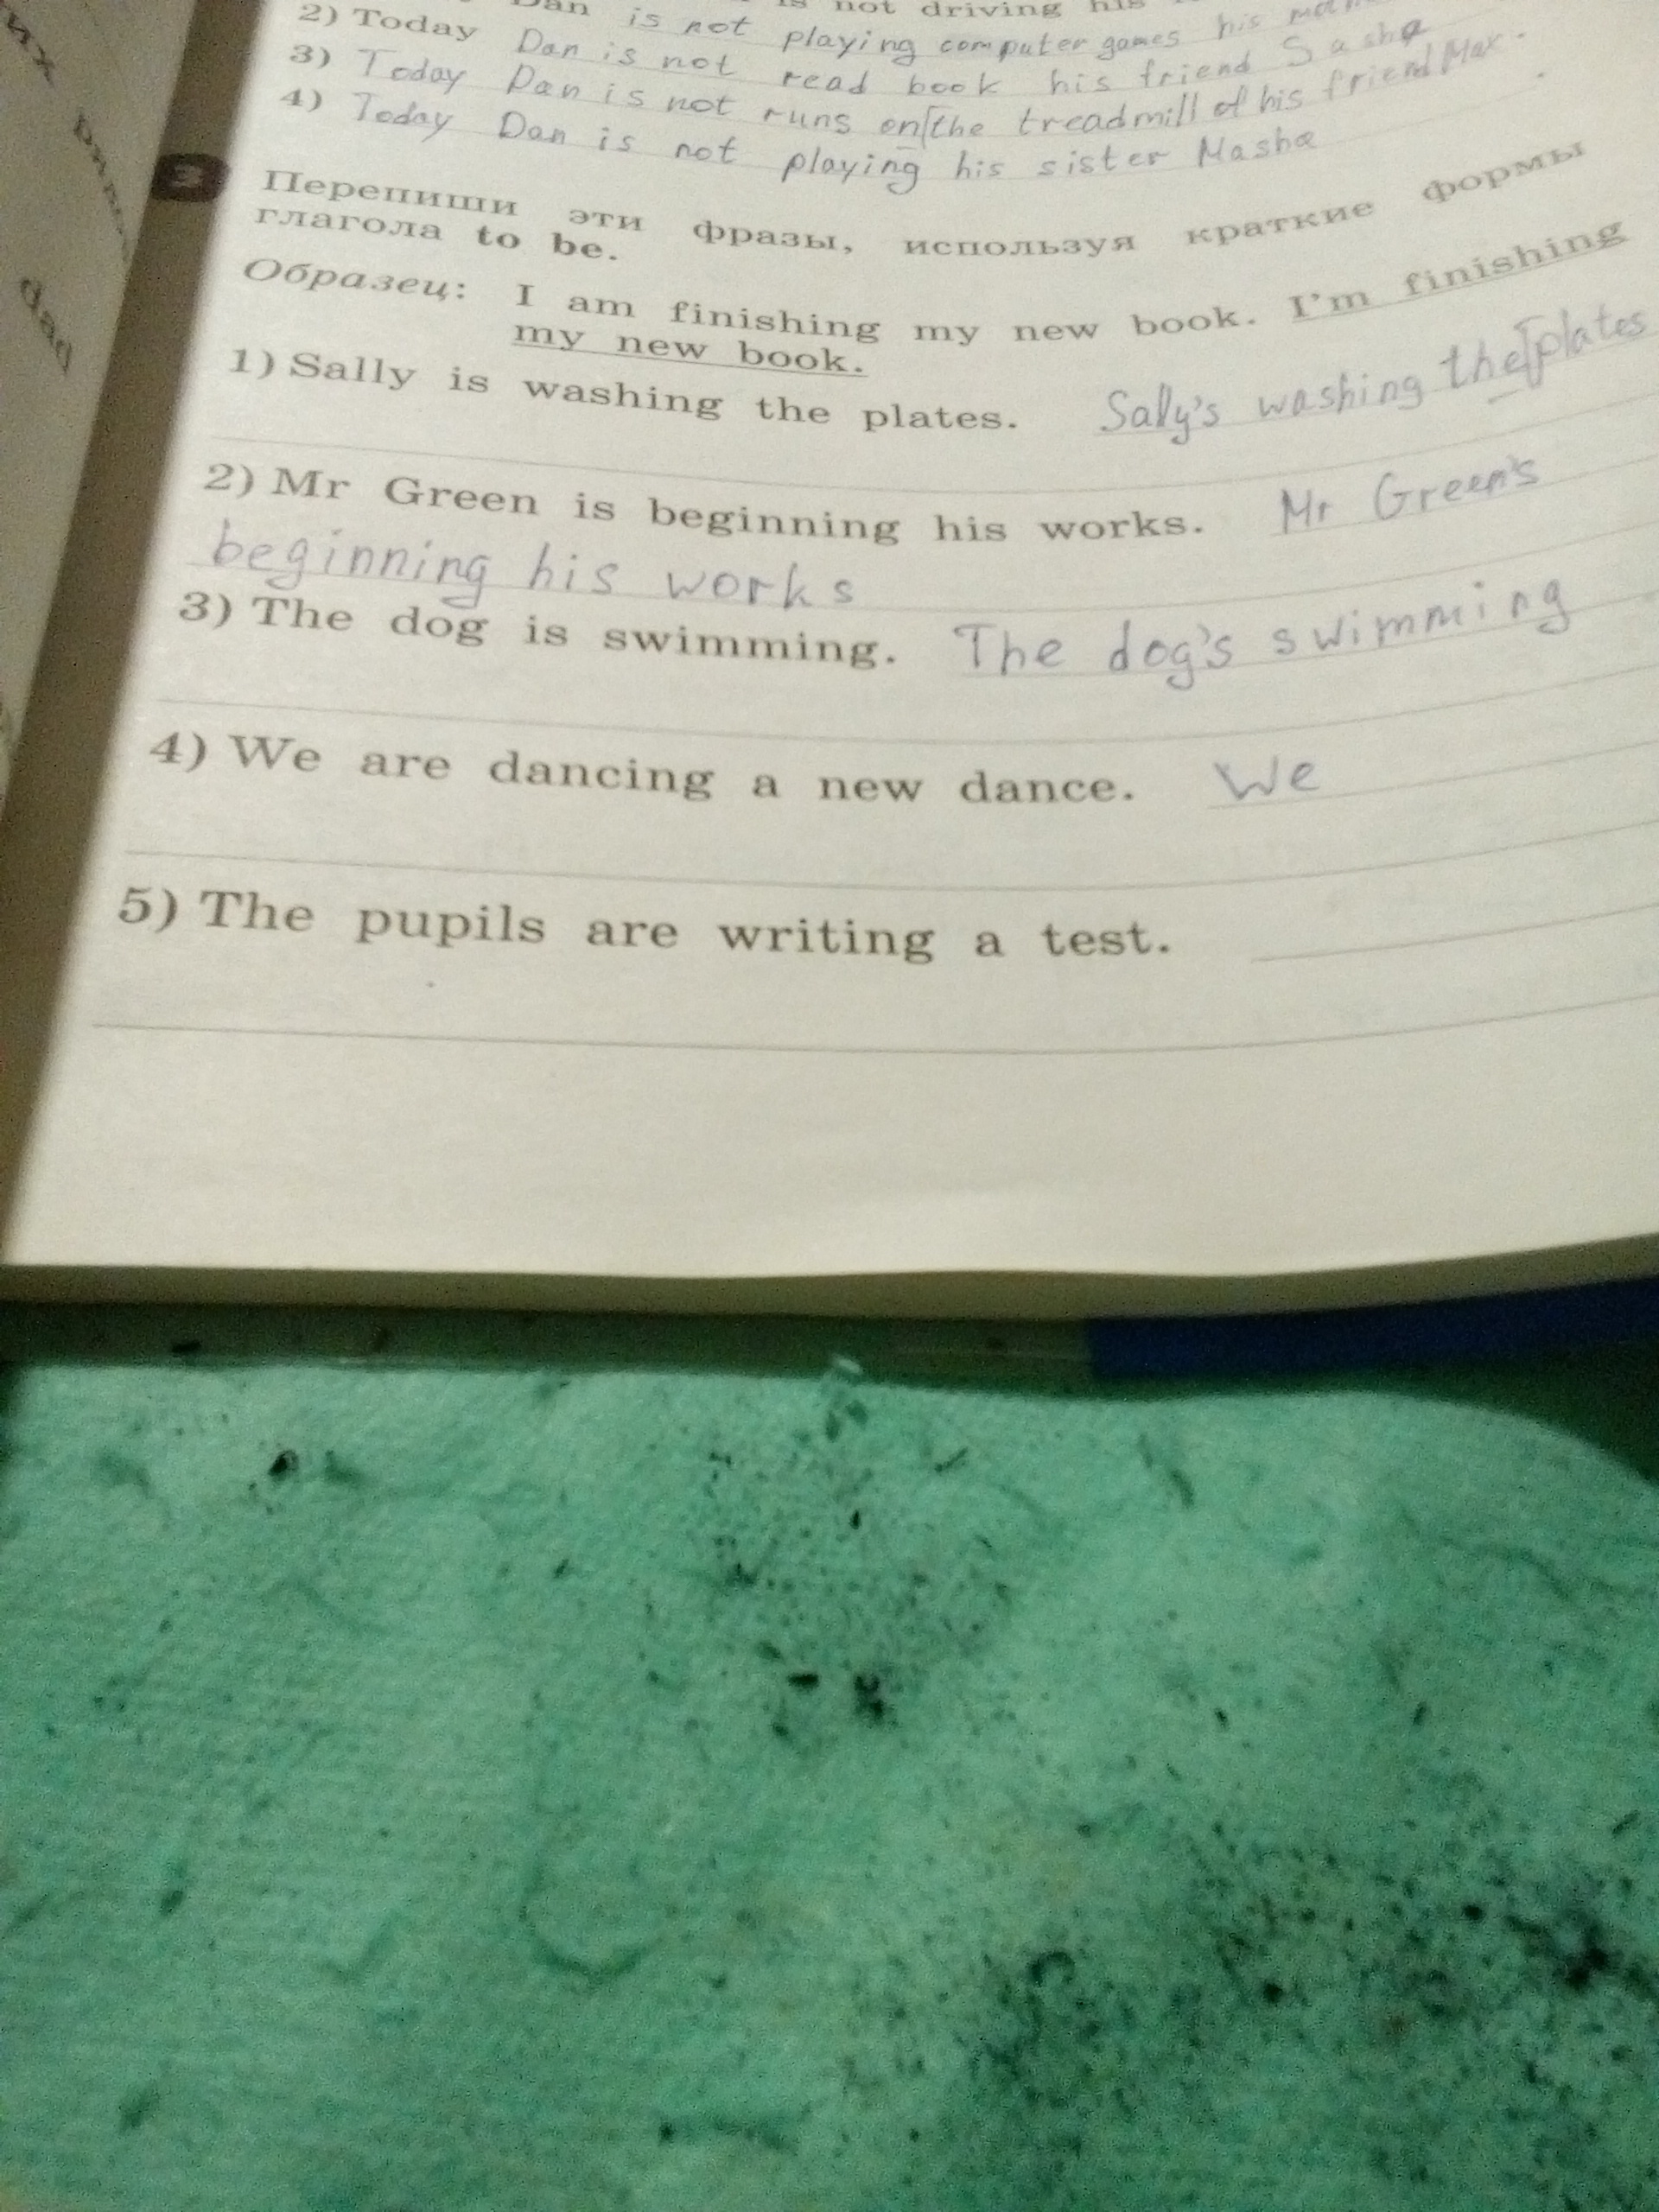 их
dad
is not driving his
2) Today Dan is not playing computer games his
3) Today Dan is not read book his friend Sasha
4) Today Dan is not runs on the treadmill of his friend Max.
Today Dan is not playing his sister Masha
3 Перепиши эти фразы, используя краткие формы
глагола to be.
Образец: I am finishing my new book. I'm finishing
my new book.
1) Sally is washing the plates. Sally's washing the plates
2) Mr Green is beginning his works. Mr Green's
beginning his works
3) The dog is swimming. The dog's swimming
4) We are dancing a new dance. We
5) The pupils are writing a test.